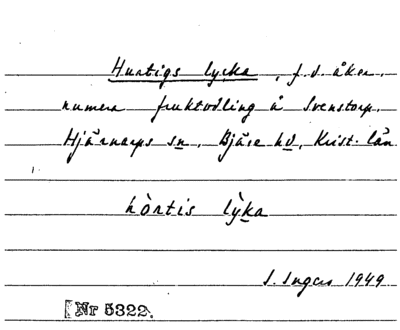 Hurtigs lycka, f.d. åker,
numera fruktodling å Svenstorp,
Hjärnarps sn, Bjäre hd, Krist. län
hòrtis lỳka
S. Ingers 1949
Nr 5322.